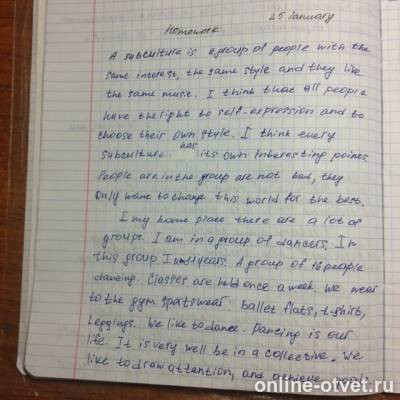 25 January
Homework
A subculture is a group of people with the
same interest, the same style and they like
the same music. I think that all people
have the right to self-expression and to
choose their own style. I think every
subculture has its own interesting points
People are in the group are not bad, they
only want to change this world for the best.
I my home place there are a lot of
groups. I am in a group of dancers. In
this group I am 11 years. A group of 16 people
dancing. Classes are held once a week. We wear
to the gym sportswear. ballet flats, t-shirt,
Leggings. We like to dance. Dancing is our
life. It is very well be in a collective. We
like to draw attention, and achieve goals
online-otvet.ru